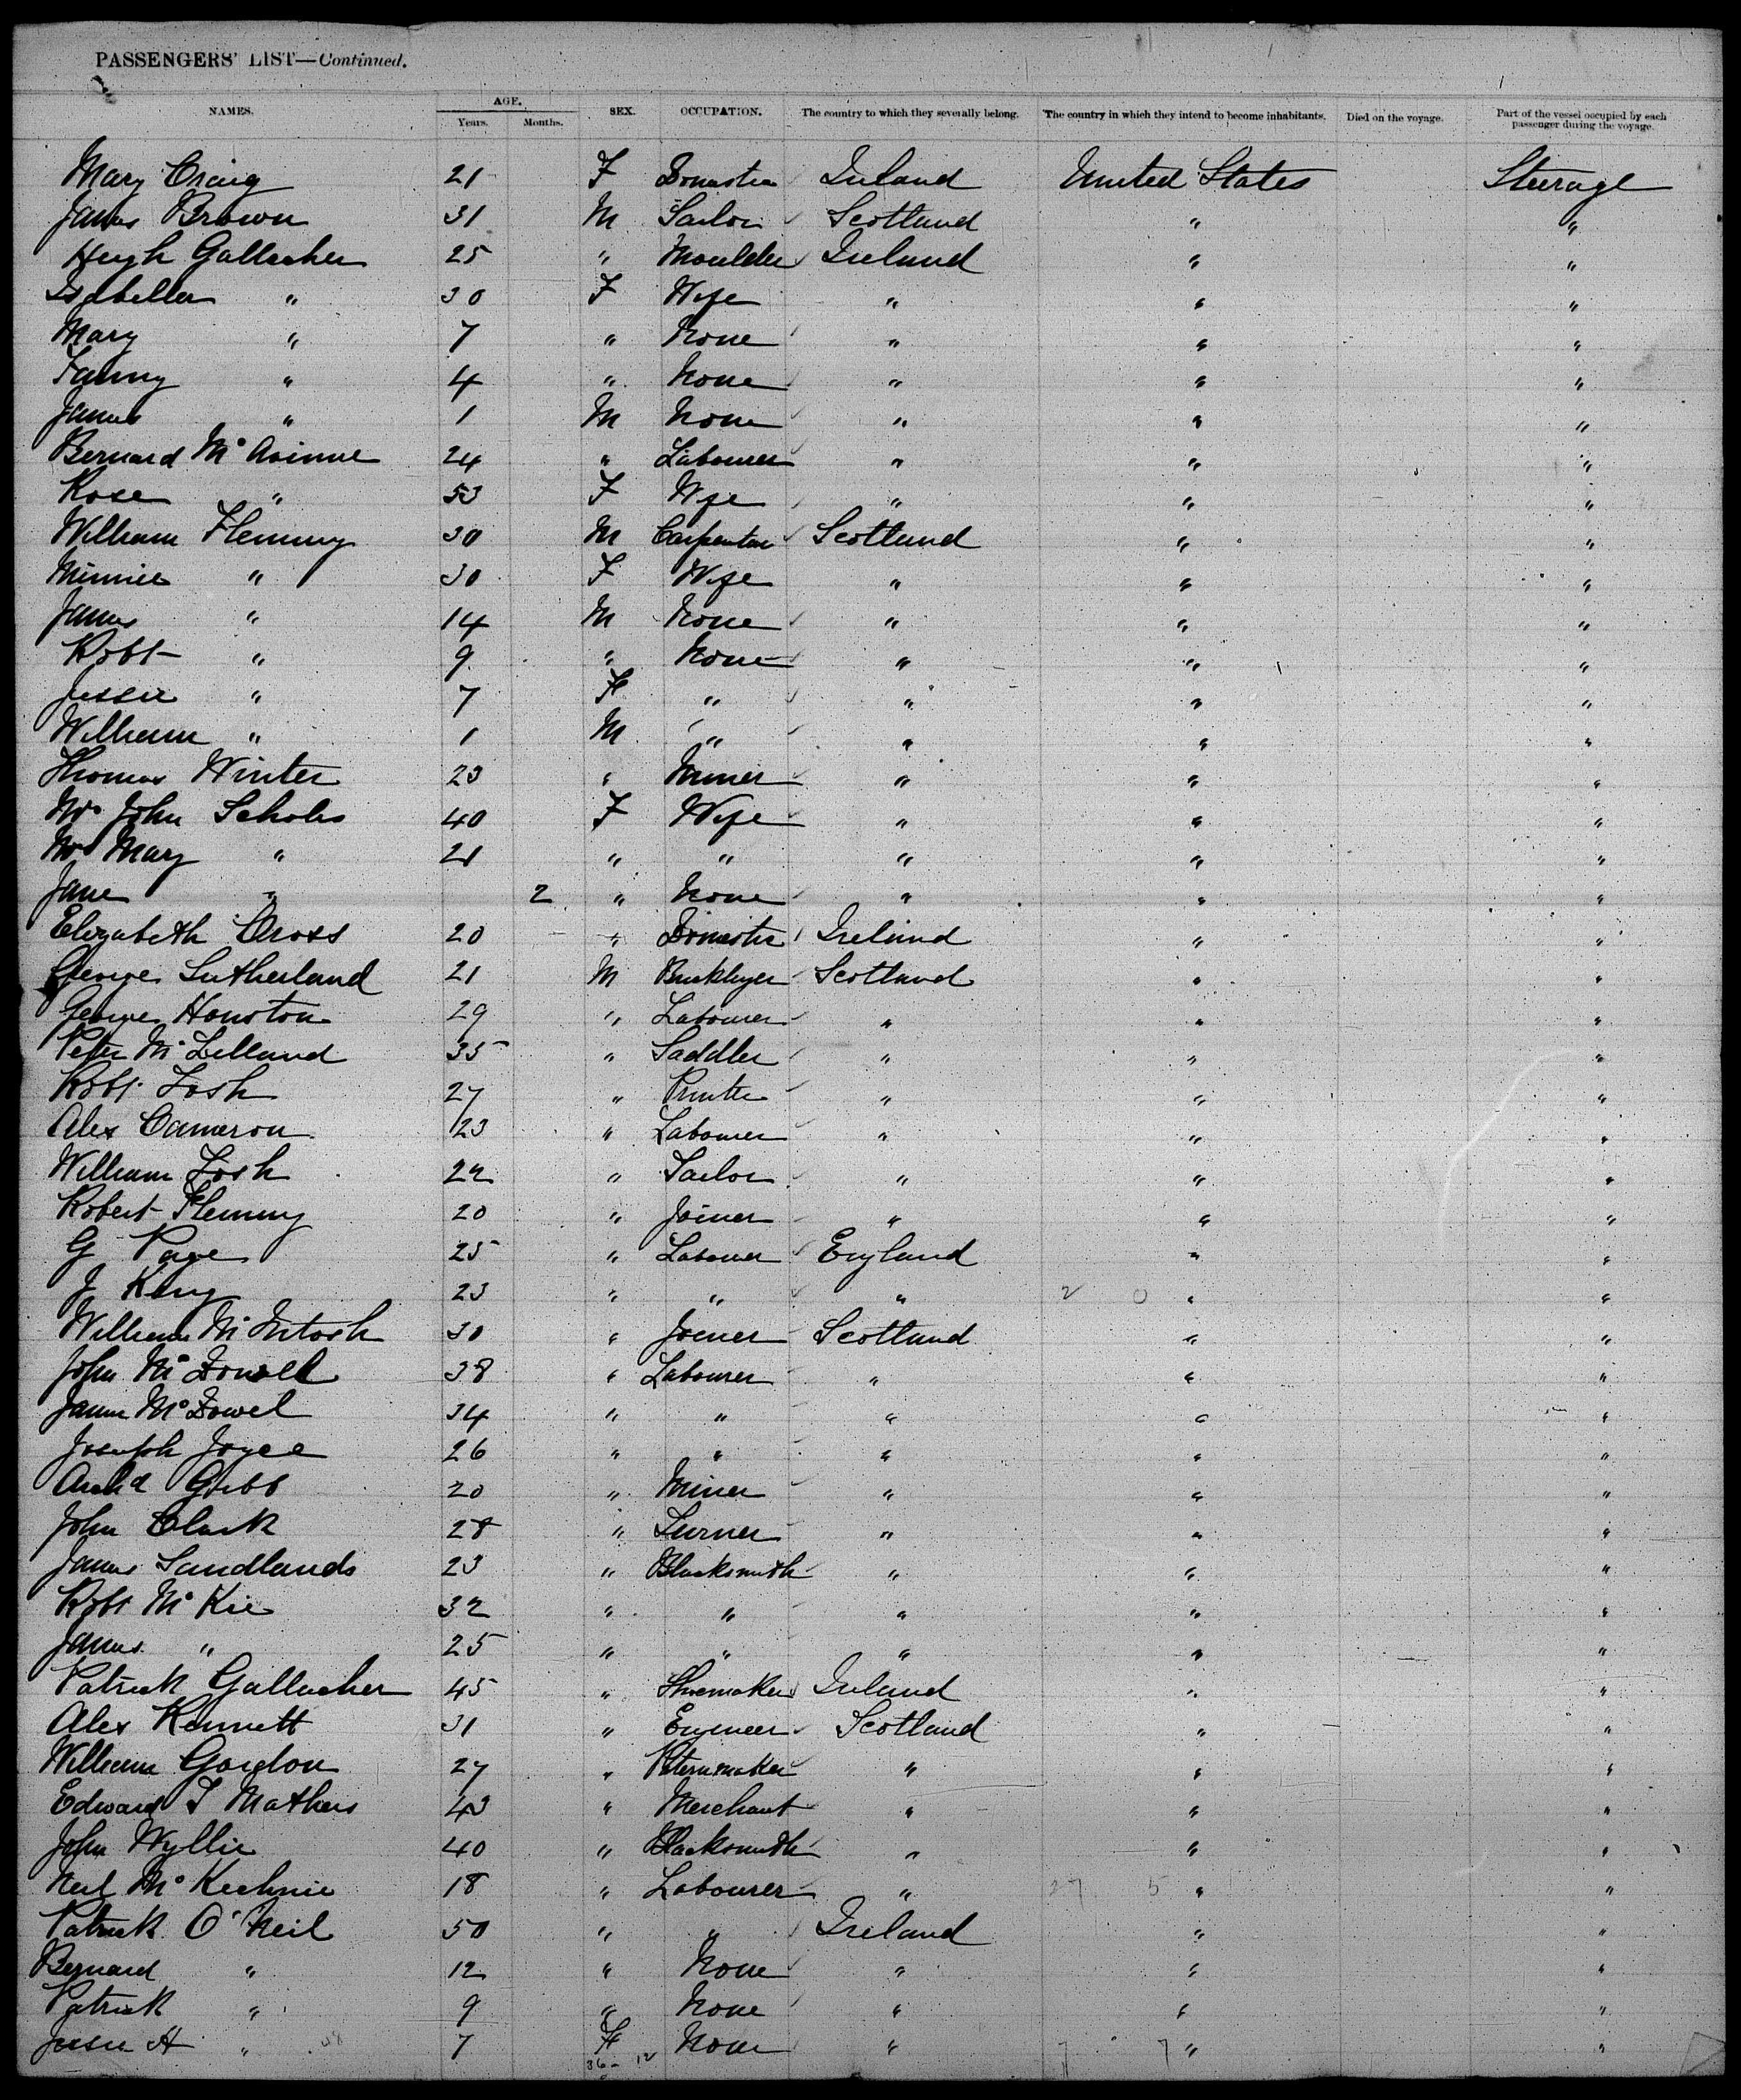 PASSENGERS' LIST—Continued.
NAMES. AGE. SEX. OCCUPATION. The country to which they severally belong. The country in which they intend to become inhabitants. Died on the voyage. Part of the vessel occupied by each passenger during the voyage.
Years. Months.
Mary Craig 21 F Domestic Ireland United States Steerage
James Brown 31 M Tailor Scotland " "
Hugh Gallacher 25 " Moulder Ireland " "
Isabella " 30 F Wife " " "
Mary " 7 " None " " "
Fanny " 4 " None " " "
James " 1 M None " " "
Bernard Mc 24 " Labourer " " "
Rose " 53 F Wife " " "
William Fleming 30 M Carpenter Scotland " "
Minnie " 30 F Wife " " "
James " 14 M None " " "
Robt " 9 " None " " "
Jessie " 7 F " " " "
William " 1 M " " " "
Thomas Winter 23 " Miner " " "
Mrs John Scholes 40 F Wife " " "
Mrs Mary " 21 " " " " "
Jane " 2 " None " " "
Elizabeth Cross 20 " Domestic Ireland " "
George Sutherland 21 M Bricklayer Scotland " "
George Houston 29 " Labourer " " "
Peter Mc Lelland 35 " Saddler " " "
Robt Tosh 27 " Printer " " "
Alex Cameron 23 " Labourer " " "
William Tosh 22 " Tailor " " "
Robert Fleming 20 " Joiner " " "
G Page 25 " Labourer England " "
J King 23 " " " " "
William Mc Intosh 30 " Joiner Scotland " "
John Mc Dowell 38 " Labourer " " "
James Mc Dowel 34 " " " " "
Joseph Joyce 26 " " " " "
Archd Gibb 20 " Miner " " "
John Clark 28 " Turner " " "
James Sandlands 23 " Blacksmith " " "
Robt Mc Kie 32 " " " " "
James " 25 " " " " "
Patrick Gallacher 45 " Shoemaker Ireland " "
Alex Kennett 31 " Engineer Scotland " "
William Gordon 27 " Paternmaker " " "
Edward T Mathers 43 " Merchant " " "
John Wyllie 40 " Blacksmith " " "
Neil Mc Kechnie 18 " Labourer " " "
Patrick O'Neil 50 " " Ireland " "
Bernard " 12 " None " " "
Patrick " 9 " None " " "
Jessie A " 7 F None " " "